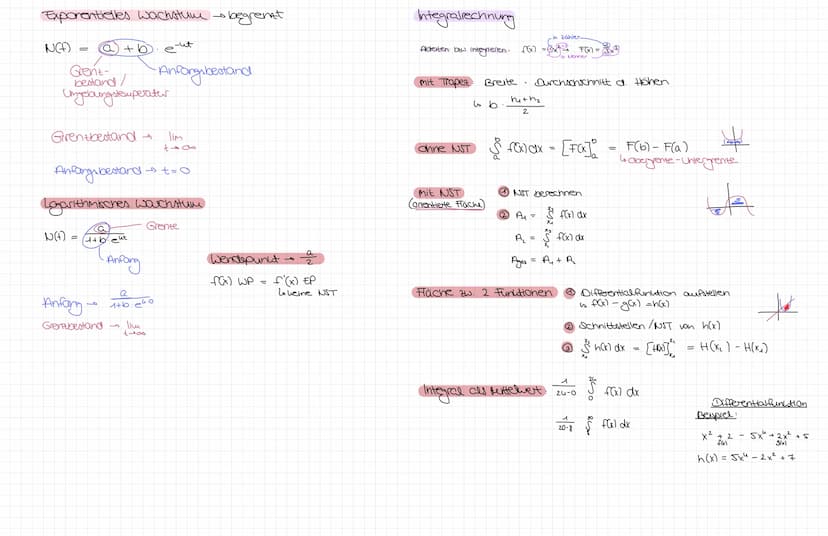 Exponentielles Wachstum → begrenzt
N(t) = a + b · e^-kt
Grenz-
bestand /
Umgebungstemperatur
Anfangsbestand
Grenzbestand → lim
t→∞
Anfangsbestand → t=0
Logarithmisches Wachstum
N(t) = a / 1+b·e^kt
Grenze
Anfang
Anfang → a / 1+b·e^k·0
Grenzbestand → lim
t→∞
Wendepunkt → a/2
f(x) WP = f'(x) EP
↳ keine NST
Integralrechnung
mit Trapez: Breite · Durchschnitt d. Höhen
↳ b · h₁+h₂ / 2
ohne NST ∫ f(x) dx = [F(x)] = F(b) - F(a)
↳ Obergrenze - Untergrenze
mit NST ① NST berechnen
(orientierte Fläche) ② A₁ = ∫ f(x) dx
A₂ = ∫ f(x) dx
Ages = A₁ + A₂
Fläche zw. 2 Funktionen ① Differentialfunktion aufstellen
↳ f(x) - g(x) = h(x)
② Schnittstellen / NST von h(x)
③ ∫ h(x) dx = [H(x)] = H(x₁) - H(x₂)
Integral als Mittelwert 1/24-0 ∫ f(x) dx
1/20-8 ∫ f(x) dx
Differentialfunktion
Beispiel:
x² + 2 - 5x⁴ + 2x² + 5
h(x) = 5x⁴ - 2x² + 7